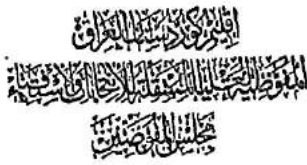 اقليم كوردستان العراق
المفوضية العليا المستقلة للانتخابات والاستفتاء
مجلس المفوضين